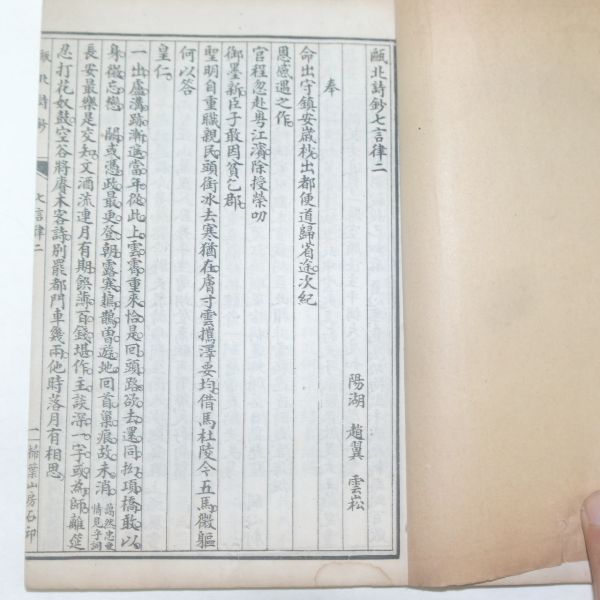 甌北詩鈔七言律二
陽湖　趙翼　雲崧
奉
命出守鎮安歲杪出都便道歸省途次紀
恩感遇之作
官程忽赴粵江濱除授榮叨
御墨新臣子敢因貧乞郡
聖明自重職親民頭銜冰去寒猶在膚寸雲攜澤要均借馬杜陵今五馬微軀
何以答
皇仁
一出盧溝跡漸遙當年從此上雲霄重來恰是回頭路欲去還同抝項橋敢以
身微忘戀　闕或憑政最更登朝露寒塢鵲曾遊地回首巢痕故未消
藹然忠愛
情見乎詞
長安最樂是交知文酒流連月有期飲薄百錢堪作主談深一字或為師離筵
忍打花奴鼓空谷將賡木客詩別罷都門車幾兩他時落月有相思
甌北詩鈔
七言律二
一
掃葉山房石印